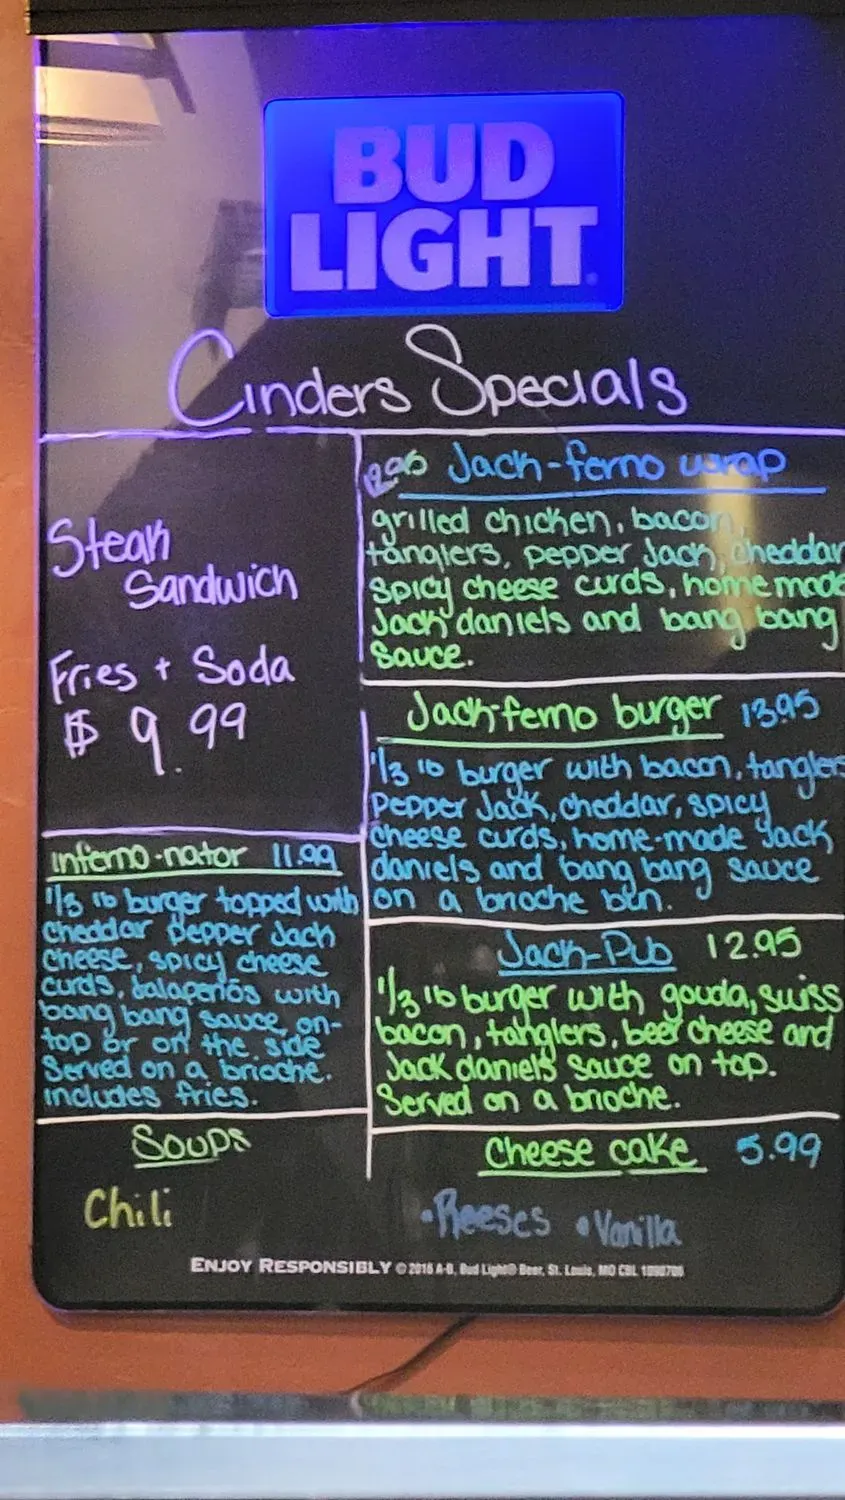 BUD
LIGHT
Cinders Specials
Steak
Sandwich
Fries + Soda
$ 9.99
Inferno-nator 11.99
1/3 lb burger topped with
cheddar pepper Jack
cheese, spicy cheese
curds, Jalapeños with
bang bang sauce, on-
top or on the side
Served on a brioche.
includes fries.
Soups
Chili
12.95 Jack-ferno wrap
grilled chicken, bacon,
tanglers, pepper Jack, cheddar
spicy cheese curds, home made
Jack daniels and bang bang
sauce.
Jack-ferno burger 13.95
1/3 lb burger with bacon, tanglers
pepper Jack, cheddar, spicy
cheese curds, home-made Jack
daniels and bang bang sauce
on a brioche bun.
Jack-Pub 12.95
1/3 lb burger with gouda, swiss
bacon, tanglers, beer cheese and
Jack daniels sauce on top.
Served on a brioche.
Cheese cake 5.99
•Reeses •Vanilla
ENJOY RESPONSIBLY © 2016 A-B, Bud Light® Beer, St. Louis, MO CBL